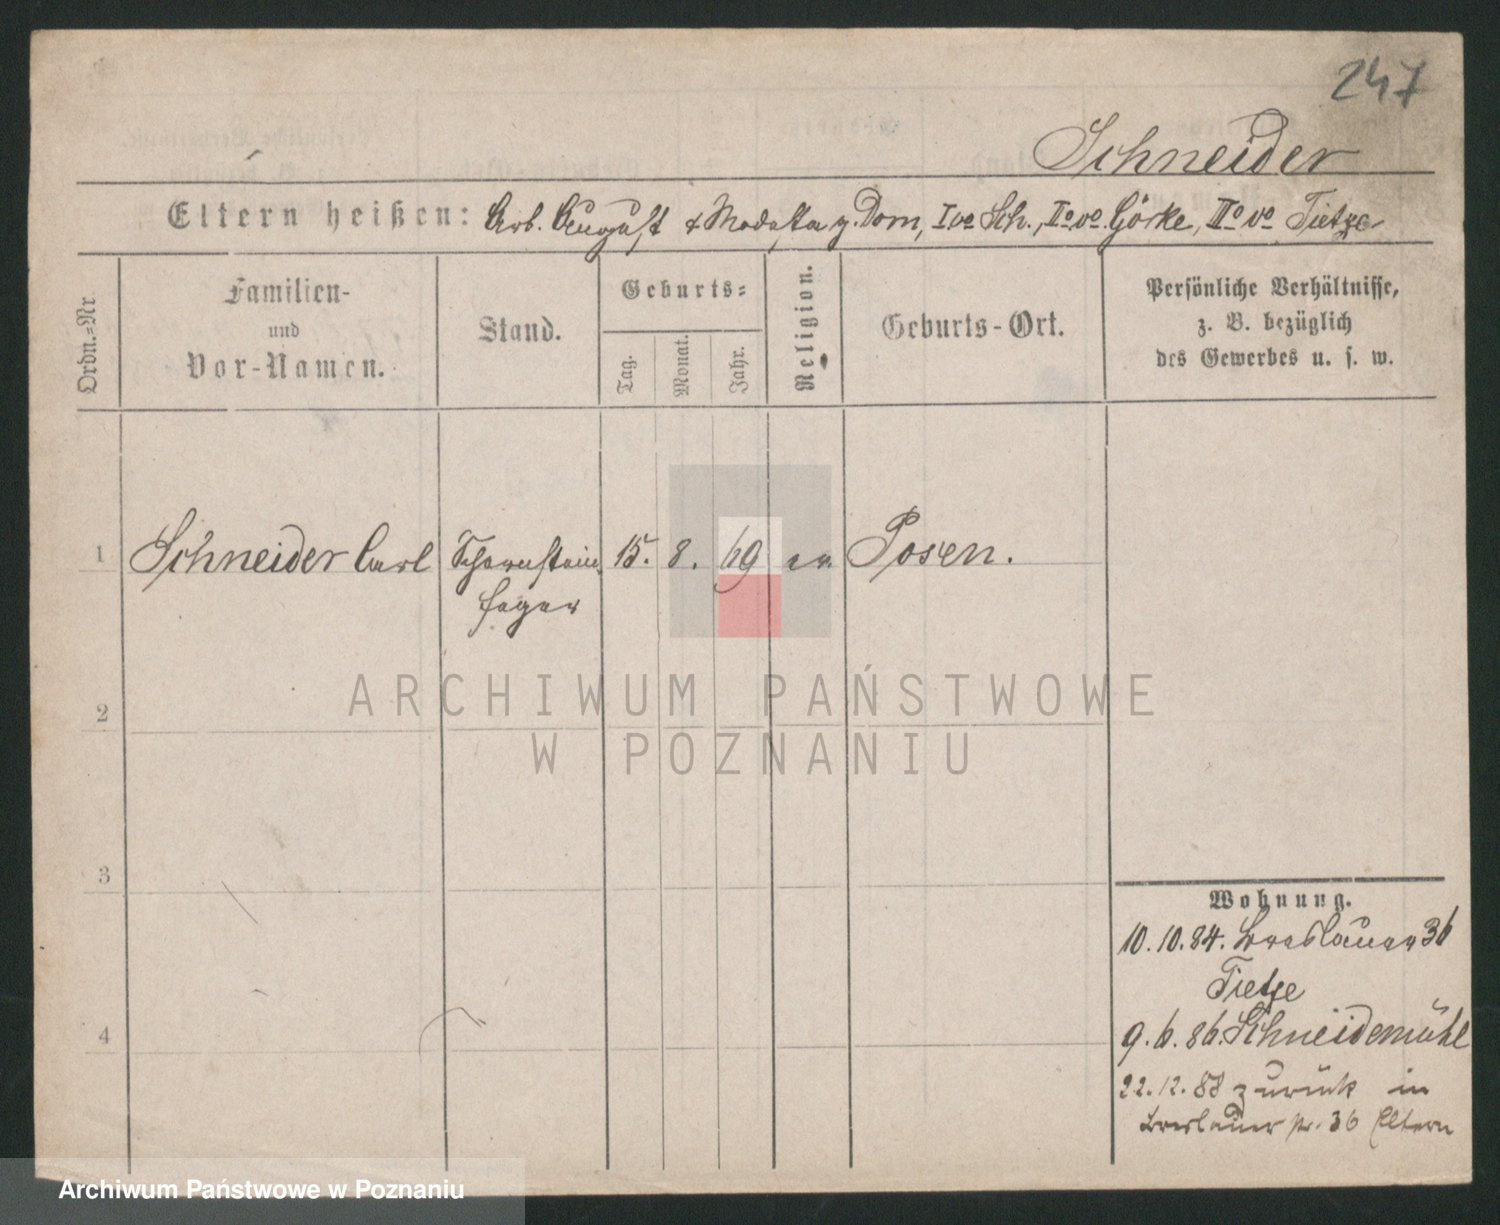 247
Schneider
Eltern heißen: Arb. August & Modesta g. Dom, I vo Sch., IIo vo. Görke, IIIo vo Tietze
Ordn.=Nr.
Familien-
und
Vor-Namen.
Stand.
Geburts=
Tag.
Monat.
Jahr.
Religion.
Geburts-Ort.
Persönliche Verhältnisse,
z. B. bezüglich
des Gewerbes u. s. w.
1 Schneider Carl Schornstein 15. 8. 69 ev. Posen.
feger
2
3
4
Wohnung.
10.10.84. Breslauer 36
Tietze
9.6.86. Schneidemühl
22.12.88 zurück in
Breslauer str. 36 Eltern
ARCHIWUM PAŃSTWOWE
W POZNANIU
Archiwum Państwowe w Poznaniu